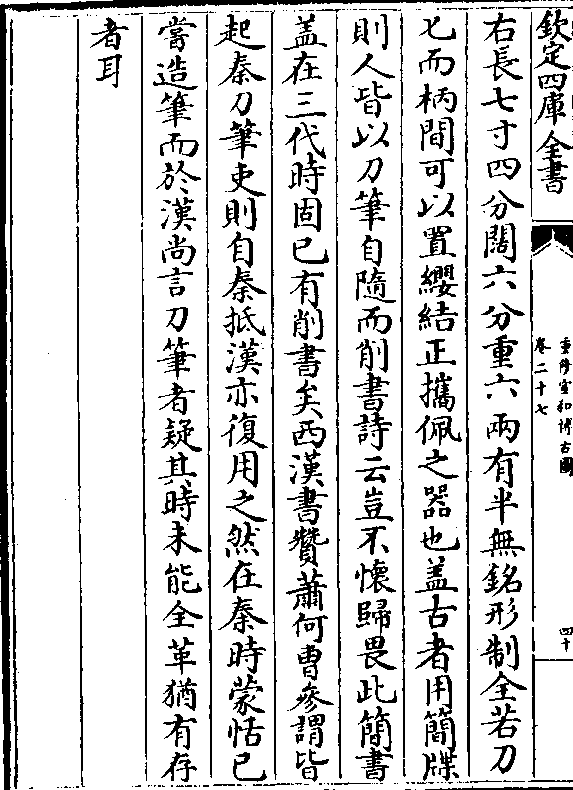 欽定四庫全書
重修宣和博古圖
卷二十七
四十
右長七寸四分闊六分重六兩有半無銘形制全若刀
匕而柄間可以置纓結正攜佩之器也盖古者用簡牒
則人皆以刀筆自隨而削書詩云豈不懷歸畏此簡書
盖在三代時固已有削書矣西漢書贊蕭何曹參謂皆
起秦刀筆吏則自秦抵漢亦復用之然在秦時蒙恬已
嘗造筆而於漢尚言刀筆者疑其時未能全革猶有存
者耳